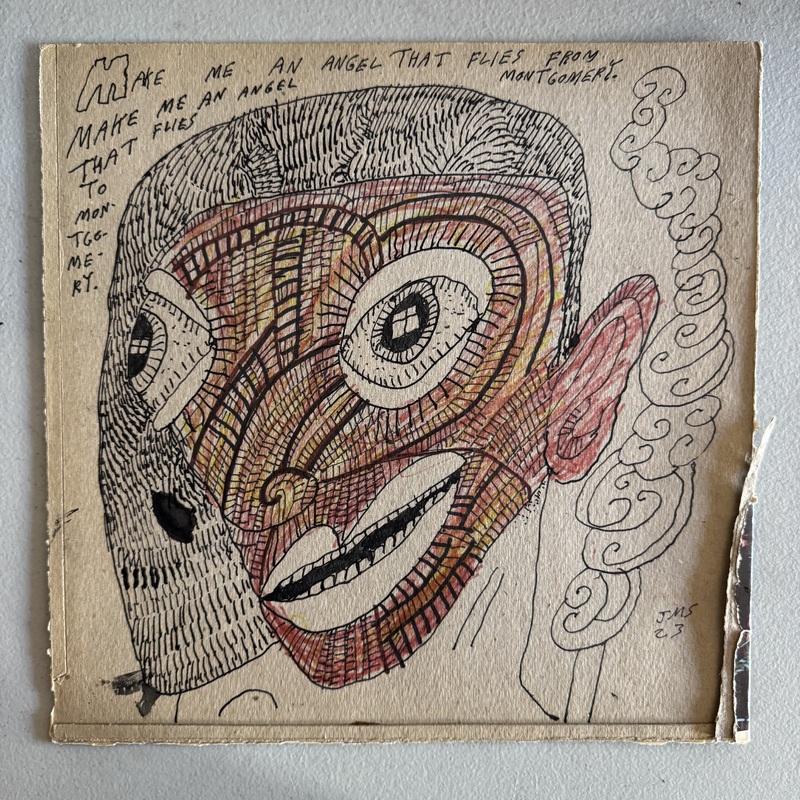 MAKE ME AN ANGEL THAT FLIES FROM
MONTGOMERY.
MAKE ME AN ANGEL
THAT FLIES
TO
MON-
TGO-
ME-
RY.
JMS
23